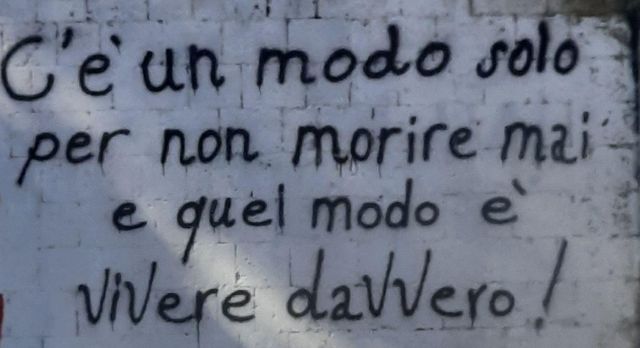 C'è un modo solo
per non morire mai
e quel modo è
vivere davvero!